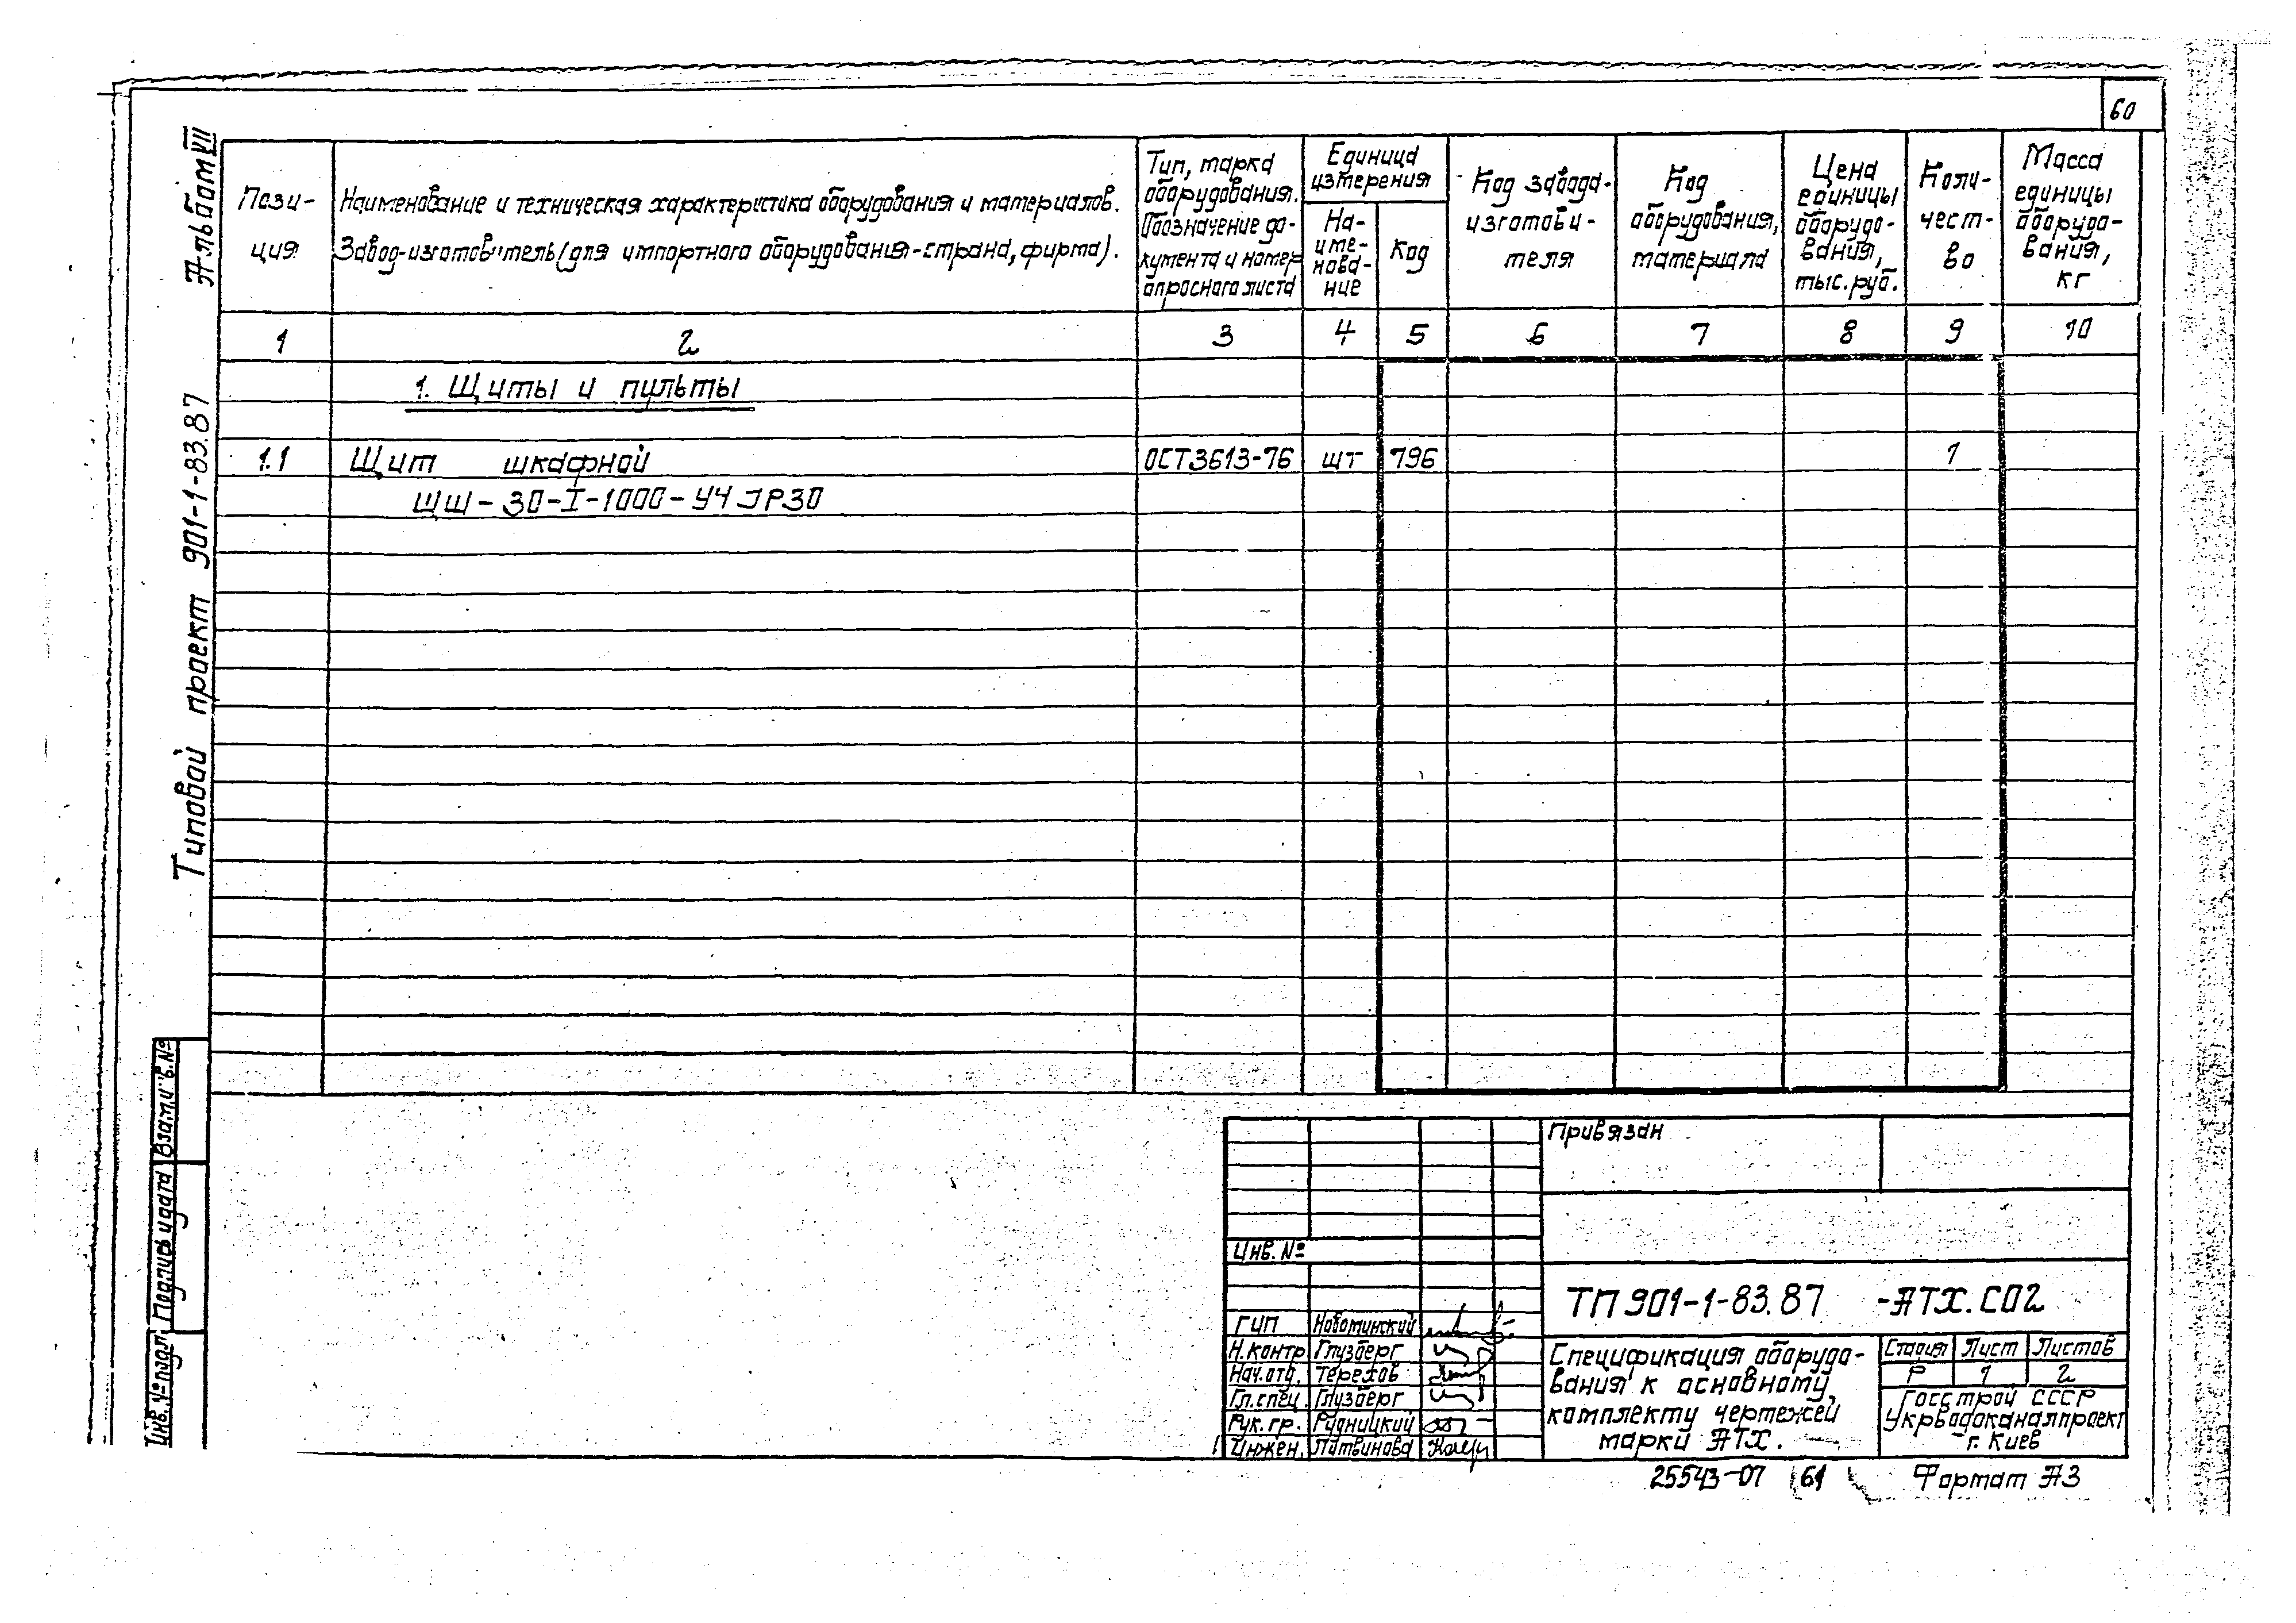 60
Альбом VII
Типовой проект 901-1-83.87
Пози-
ция
Наименование и техническая характеристика оборудования и материалов.
Завод-изготовитель (для импортного оборудования-страна, фирма).
Тип, марка
оборудования.
Обозначение до-
кумента и номер
опросного листа
Единица
измерения
На-
име-
нова-
ние
Код
Код завода-
изготови-
теля
Код
оборудования,
материала
Цена
единицы
оборудо-
вания,
тыс. руб.
Коли-
чест-
во
Масса
единицы
оборудо-
вания,
кг
1 2 3 4 5 6 7 8 9 10
1. Щиты и пульты
1.1 Щит шкафной ОСТ3613-76 шт 796 1
ЩШ-ЗД-I-1000-УЧ JP30
Взам.инв.№
Подпись и дата
Инв.№ подл.
Привязан
Инв. №
ТП 901-1-83.87 -АТХ.СО2
ГИП Новоминский
Н.контр Глузберг
Нач.отд. Терехов
Гл.спец. Глузберг
Рук. гр. Рудницкий
Инжен. Литвинова
Спецификация оборудо-
вания к основному
комплекту чертежей
марки АТХ.
Стадия Лист Листов
Р 1 2
Госстрой СССР
Укрводоканалпроект
г. Киев
25543-07 61 Формат А3